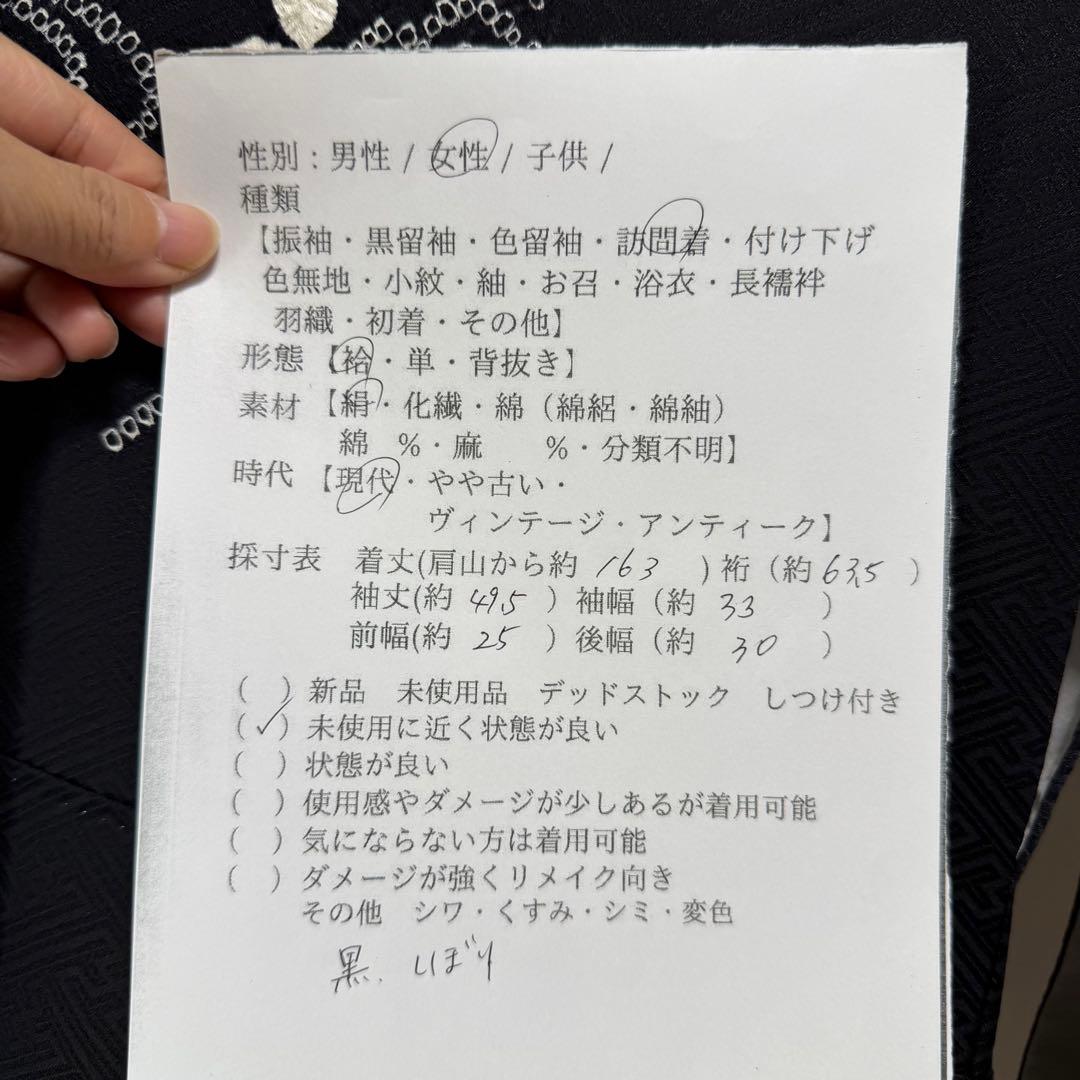 性別：男性 / 女性 / 子供 /
種類
【振袖・黒留袖・色留袖・訪問着・付け下げ
色無地・小紋・紬・お召・浴衣・長襦袢
羽織・初着・その他】
形態【袷・単・背抜き】
素材【絹・化繊・綿（綿絽・綿紬）
綿 %・麻 %・分類不明】
時代【現代・やや古い・
ヴィンテージ・アンティーク】
採寸表 着丈(肩山から約 163 ) 裄（約 63.5 ）
袖丈(約 49.5 ）袖幅（約 33 ）
前幅(約 25 ）後幅（約 30 ）
( ) 新品 未使用品 デッドストック しつけ付き
(✓) 未使用に近く状態が良い
( ) 状態が良い
( ) 使用感やダメージが少しあるが着用可能
( ) 気にならない方は着用可能
( ) ダメージが強くリメイク向き
その他 シワ・くすみ・シミ・変色
黒、しぼり